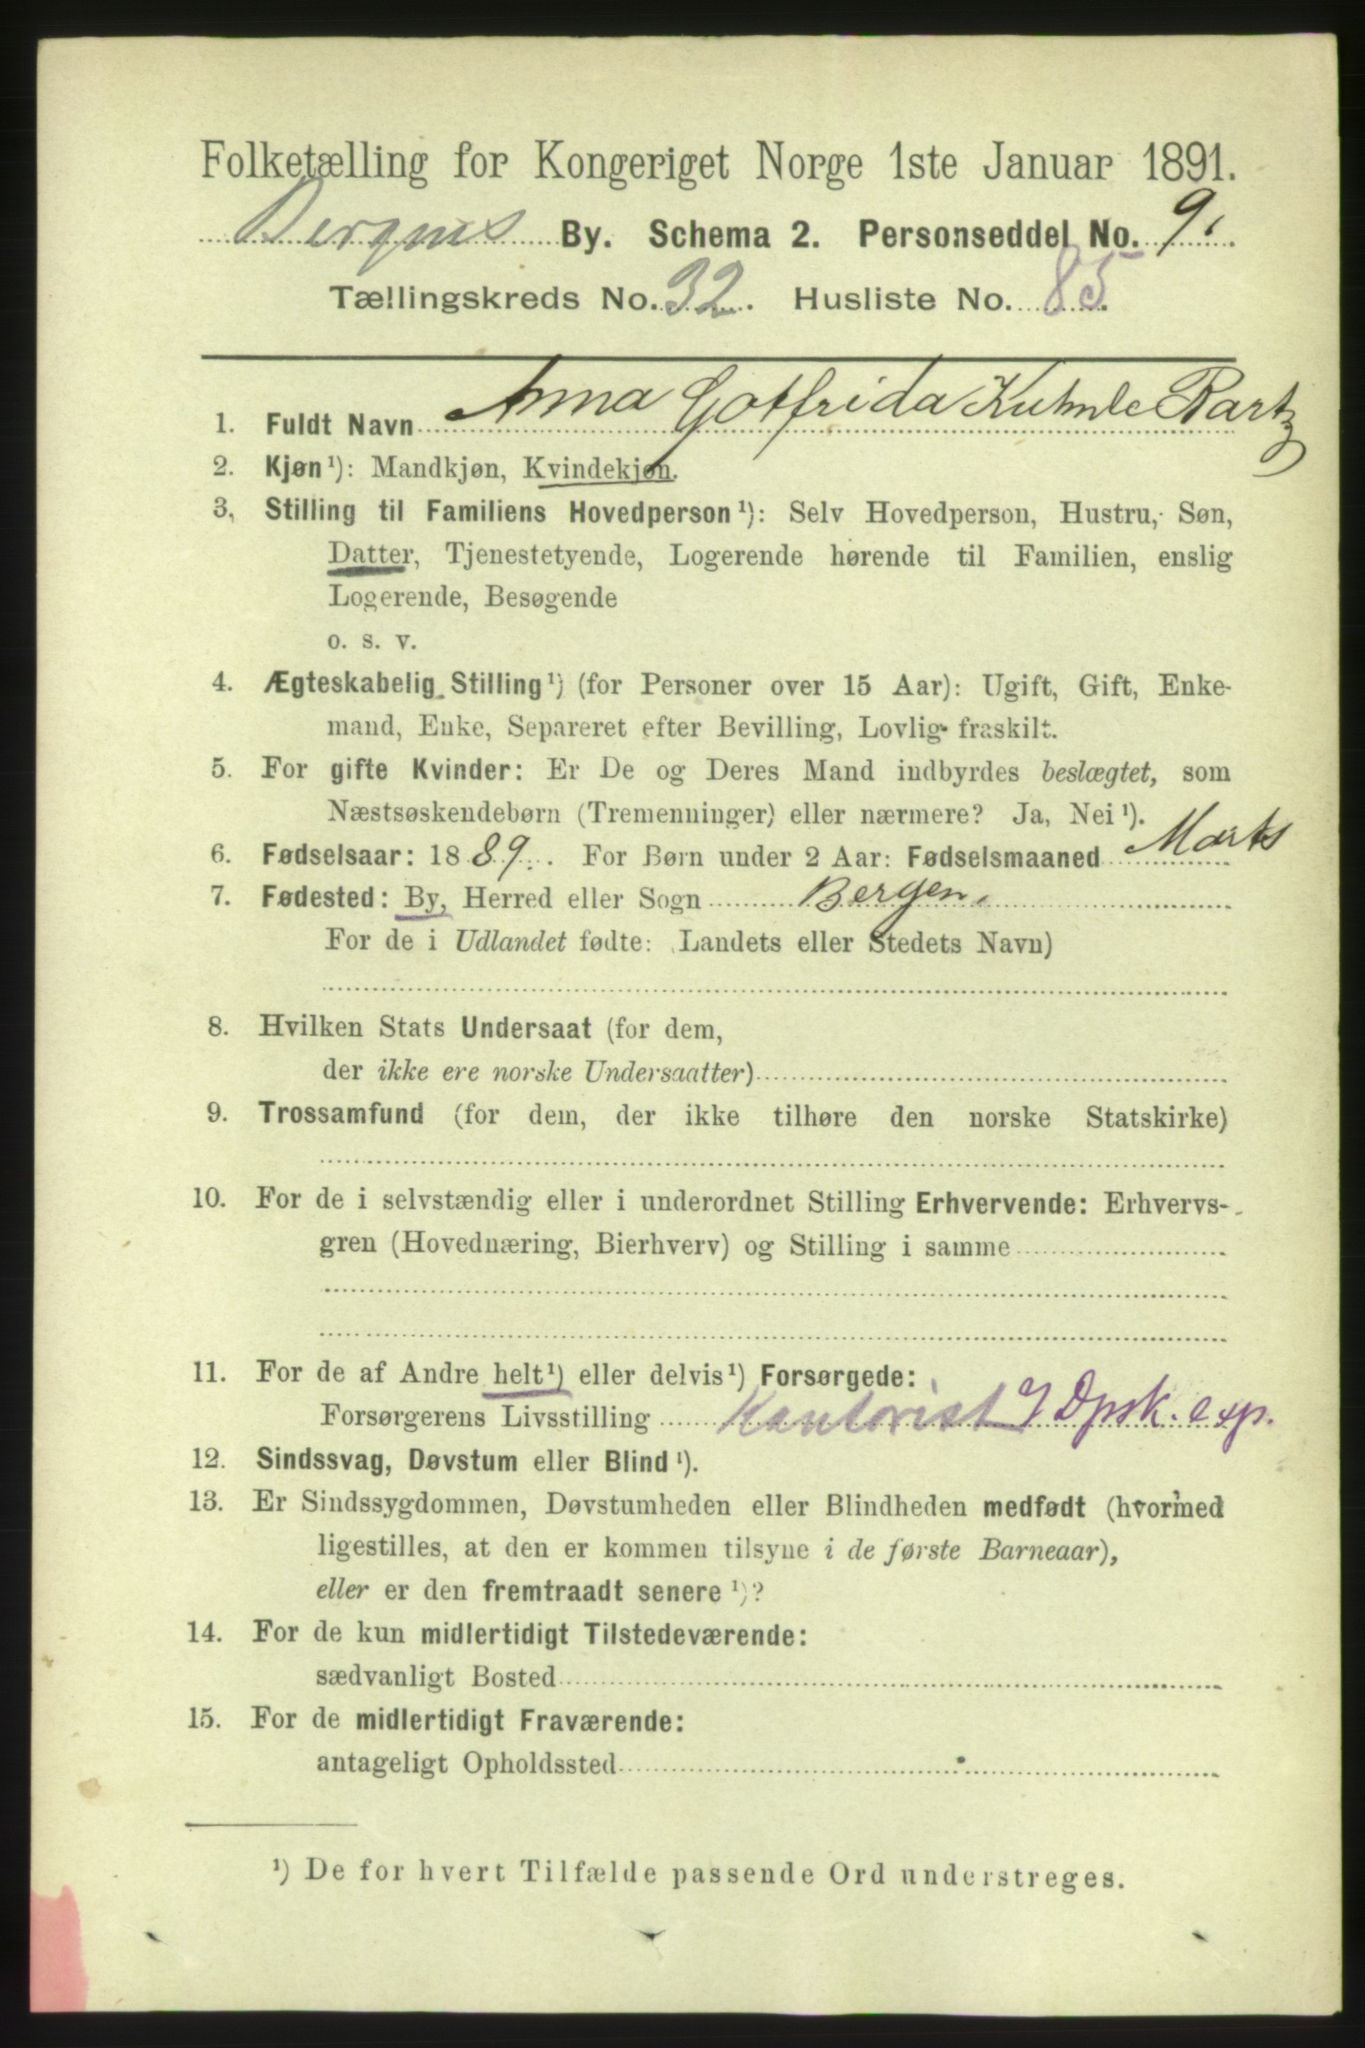 Folketælling for Kongeriget Norge 1ste Januar 1891.
Bergens By. Schema 2. Personseddel No. 9.
Tællingskreds No. 32. Husliste No. 85.
1. Fuldt Navn Anna Gotfrida Kuhnle Partz
2. Kjøn¹): Mandkjøn, Kvindekjøn.
3, Stilling til Familiens Hovedperson¹): Selv Hovedperson, Hustru, Søn,
Datter, Tjenestetyende, Logerende hørende til Familien, enslig
Logerende, Besøgende
o. s. v.
4. Ægteskabelig Stilling¹) (for Personer over 15 Aar): Ugift, Gift, Enke-
mand, Enke, Separeret efter Bevilling, Lovlig fraskilt.
5. For gifte Kvinder: Er De og Deres Mand indbyrdes beslægtet, som
Næstsøskendebørn (Tremenninger) eller nærmere? Ja, Nei¹).
6. Fødselsaar: 1889. For Børn under 2 Aar: Fødselsmaaned Marts
7. Fødested: By, Herred eller Sogn Bergen.
For de i Udlandet fødte: Landets eller Stedets Navn)
8. Hvilken Stats Undersaat (for dem,
der ikke ere norske Undersaatter)
9. Trossamfund (for dem, der ikke tilhøre den norske Statskirke)
10. For de i selvstændig eller i underordnet Stilling Erhvervende: Erhvervs-
gren (Hovednæring, Bierhverv) og Stilling i samme
11. For de af Andre helt¹) eller delvis¹) Forsørgede:
Forsørgerens Livsstilling Kontorist Dpsk. exp.
12. Sindssvag, Døvstum eller Blind¹).
13. Er Sindssygdommen, Døvstumheden eller Blindheden medfødt (hvormed
ligestilles, at den er kommen tilsyne i de første Barneaar),
eller er den fremtraadt senere¹)?
14. For de kun midlertidigt Tilstedeværende:
sædvanligt Bosted
15. For de midlertidigt Fraværende:
antageligt Opholdssted
¹) De for hvert Tilfælde passende Ord understreges.